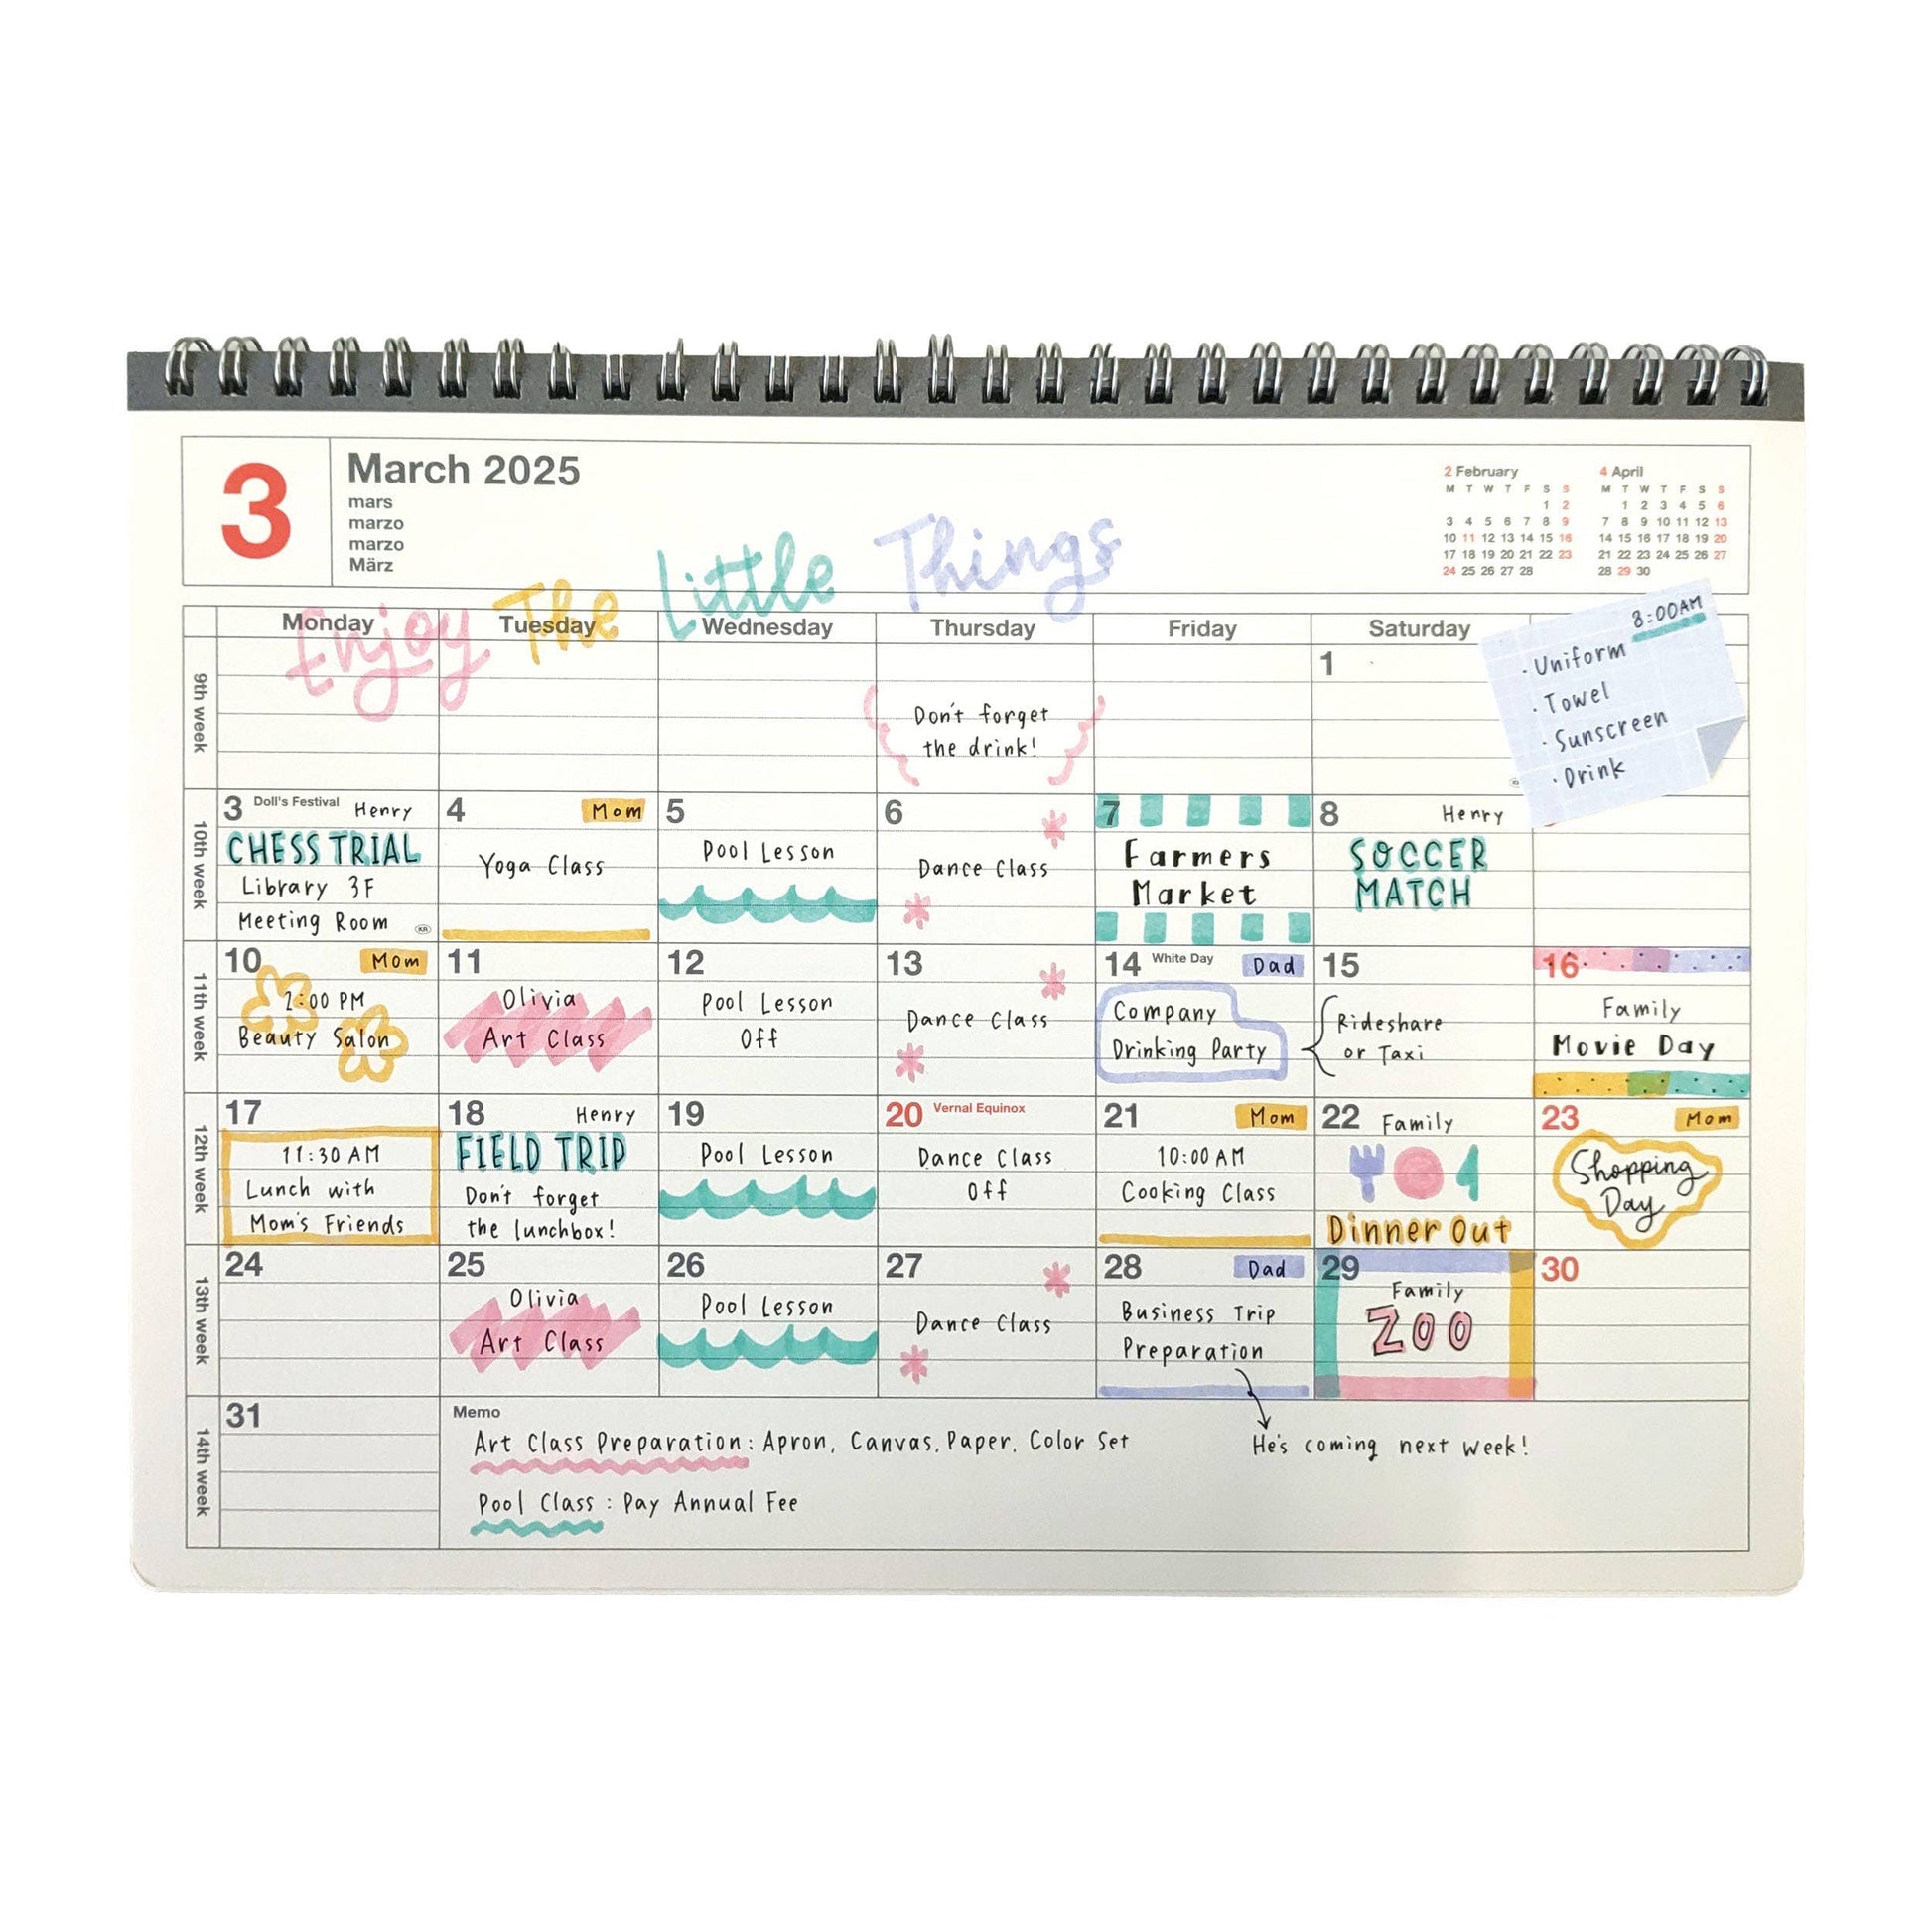 3
March 2025
mars
marzo
marzo
März
2 February
M T W T F S S
1 2
3 4 5 6 7 8 9
10 11 12 13 14 15 16
17 18 19 20 21 22 23
24 25 26 27 28
4 April
M T W T F S S
1 2 3 4 5 6
7 8 9 10 11 12 13
14 15 16 17 18 19 20
21 22 23 24 25 26 27
28 29 30
Enjoy The Little Things
Monday Tuesday Wednesday Thursday Friday Saturday
8:00AM
· Uniform
· Towel
· Sunscreen
· Drink
9th week
1
Don't forget
the drink!
10th week
3 Doll's Festival Henry
CHESS TRIAL
Library 3F
Meeting Room
4 Mom
Yoga Class
5
Pool Lesson
6
Dance Class
7
Farmers
Market
8 Henry
SOCCER
MATCH
11th week
10 Mom
2:00 PM
Beauty Salon
11
Olivia
Art Class
12
Pool Lesson
Off
13
Dance Class
14 White Day Dad
Company
Drinking Party
15
Rideshare
or Taxi
16
Family
Movie Day
12th week
17
11:30 AM
Lunch with
Mom's Friends
18 Henry
FIELD TRIP
Don't forget
the lunchbox!
19
Pool Lesson
20 Vernal Equinox
Dance Class
Off
21 Mom
10:00 AM
Cooking Class
22 Family
Dinner Out
23 Mom
Shopping
Day
13th week
24
25
Olivia
Art Class
26
Pool Lesson
27
Dance Class
28 Dad
Business Trip
Preparation
29
Family
ZOO
30
14th week
31
Memo
Art Class Preparation: Apron, Canvas, Paper, Color Set
He's coming next week!
Pool Class: Pay Annual Fee